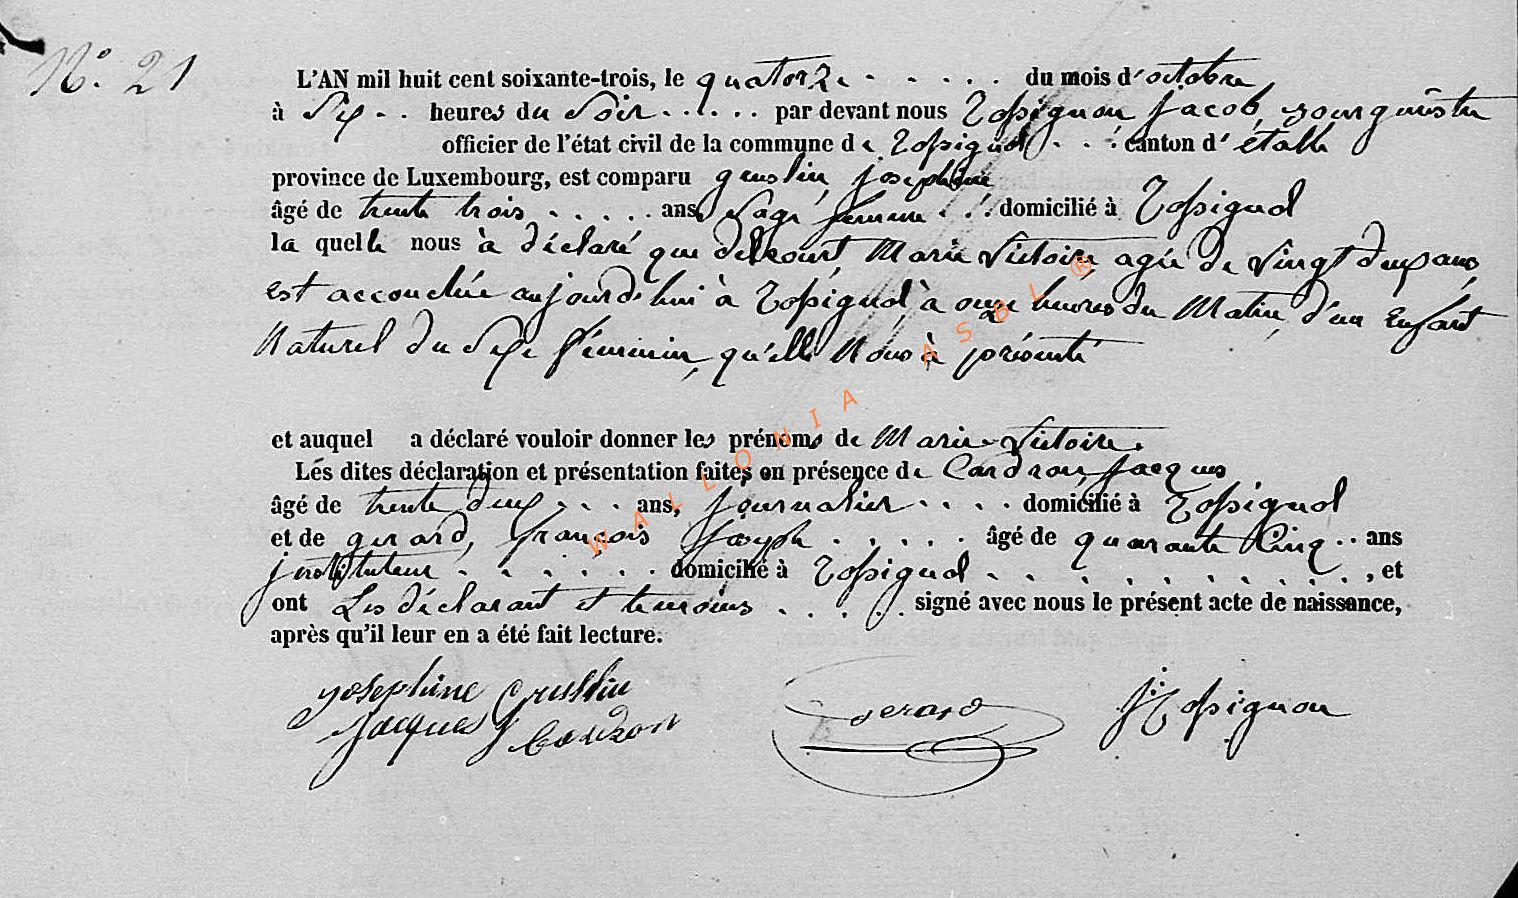 N° 21
L'AN mil huit cent soixante-trois, le quatorze . . . . . du mois d'octobre
à Six . . heures du Soir . . . . . . par devant nous Rossignon Jacob, Bourguemestre
officier de l'état civil de la commune de Rossignol . . . canton d'étalle
province de Luxembourg, est comparu Joséphine
âgé de trente trois . . . . . ans, Sage femme . . . domicilié à Rossignol
la quelle nous à déclaré que delcourt, Marie Victoire, agée de Vingt deux ans,
est accouchée aujourd'hui à Rossignol, à onze heures du Matin, d'un Enfant
Naturel du Sexe féminin, qu'elle Nous à présenté
et auquel a déclaré vouloir donner les prénoms de Marie Victoire.
Lés dites déclaration et présentation faites en présence de Cardron, Jacques
âgé de trente deux . . . ans, journalier . . . . domicilié à Rossignol
et de gerard, françois Joseph . . . . . âgé de quarante Cinq . . ans
instituteur . . . . . . . domicilié à Rossignol . . . . . . . . . . . . , et
ont Les déclarant et temoins . . . . . signé avec nous le présent acte de naissance,
après qu'il leur en a été fait lecture.
Josephine
Jacques Cardron
Gerard
J Rossignon
WALLONIA ASBL ®